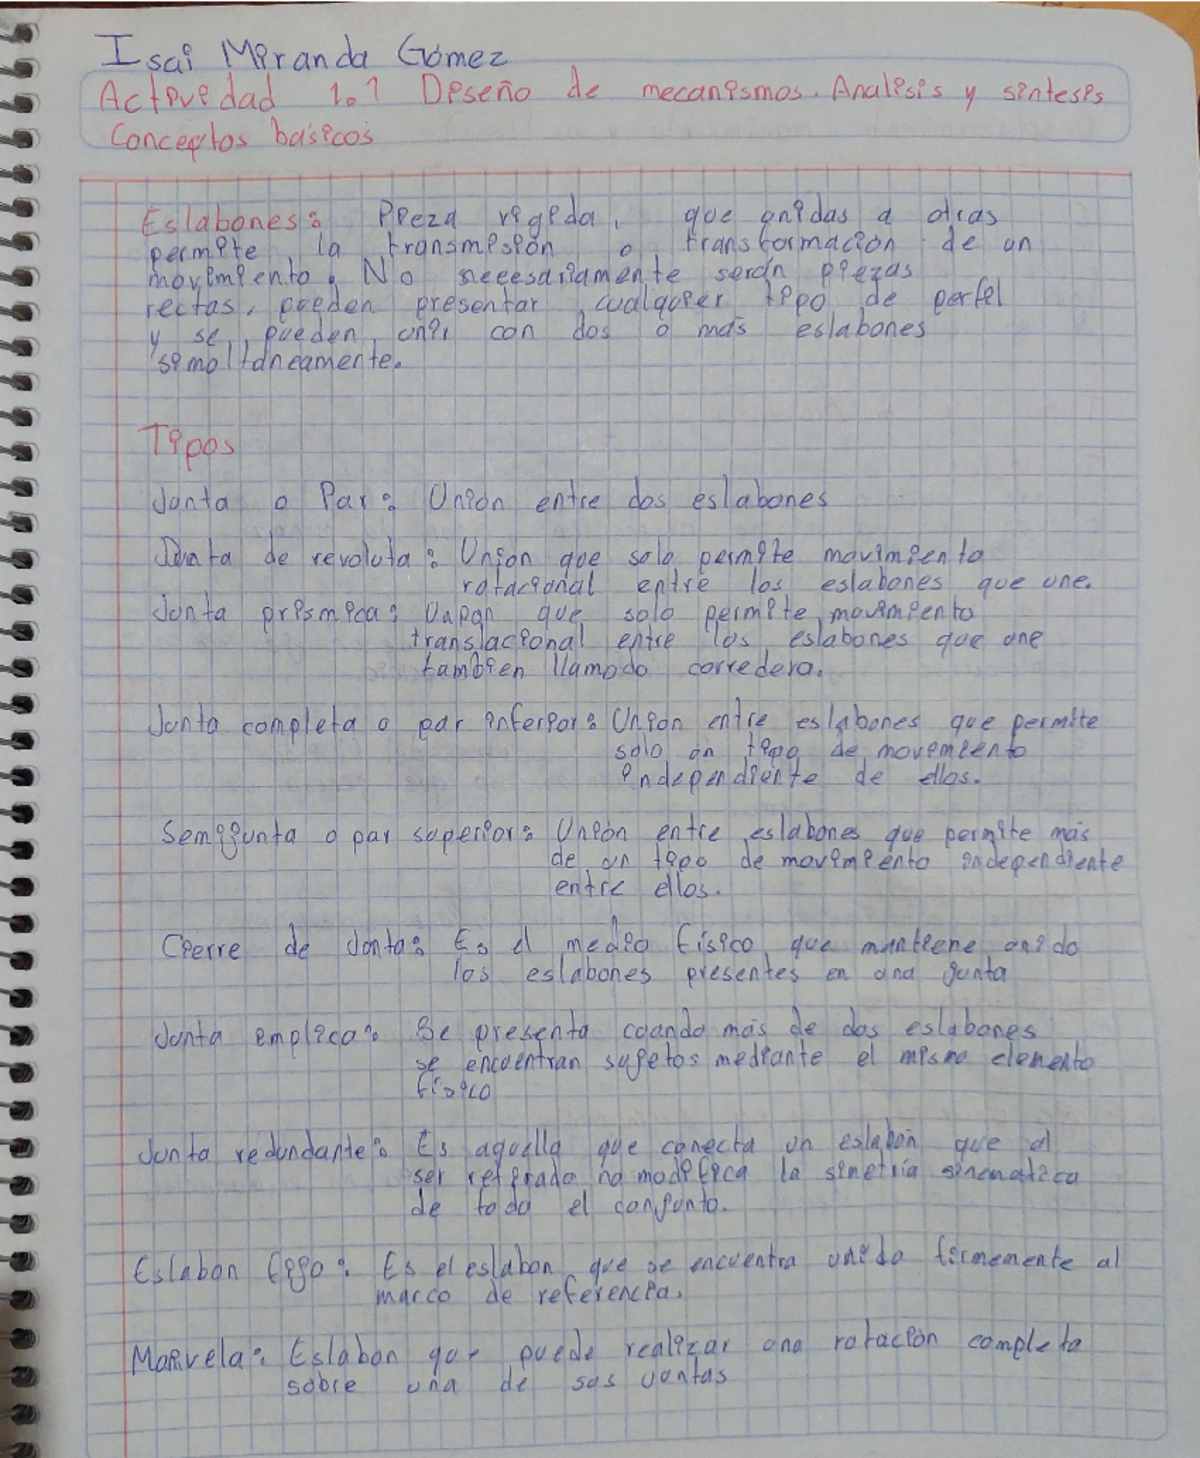 Isai Miranda Gómez
Actividad 1.1 Diseño de mecanismos. Analisis y sintesis
Conceptos basicos
Eslabones: Pieza rigida, que unidas a otras
permite la transmisión o transformación de un
movimiento. No necesariamente serán piezas
rectas, pueden presentar cualquier tipo de perfil
y se pueden unir con dos o más eslabones
simultáneamente.
Tipos
Junta o Par: Unión entre dos eslabones
Junta de revoluta: Union que solo permite movimiento
rotacional entre los eslabones que une.
Junta prismica: Union que solo permite movimiento
translacional entre los eslabones que une
tambien llamado corredera.
Junta completa o par inferior: Unión entre eslabones que permite
solo un tipo de movimiento
independiente de ellos.
Semijunta o par superior: Unión entre eslabones que permite más
de un tipo de movimiento independiente
entre ellos.
Cierre de Junta: Es el medio físico que mantiene unido
los eslabones presentes en una junta
Junta emplica: Se presenta cuando más de dos eslabones
se encuentran sujetos mediante el mismo elemento
físico
Junta redundante: Es aquella que conecta un eslabón que al
ser retirado no modifica la simetría sinematica
de todo el conjunto.
Eslabon fijo: Es el eslabon que se encuentra unido firmemente al
marco de referencia.
Manivela: Eslabon que puede realizar una rotación completa
sobre una de sus juntas